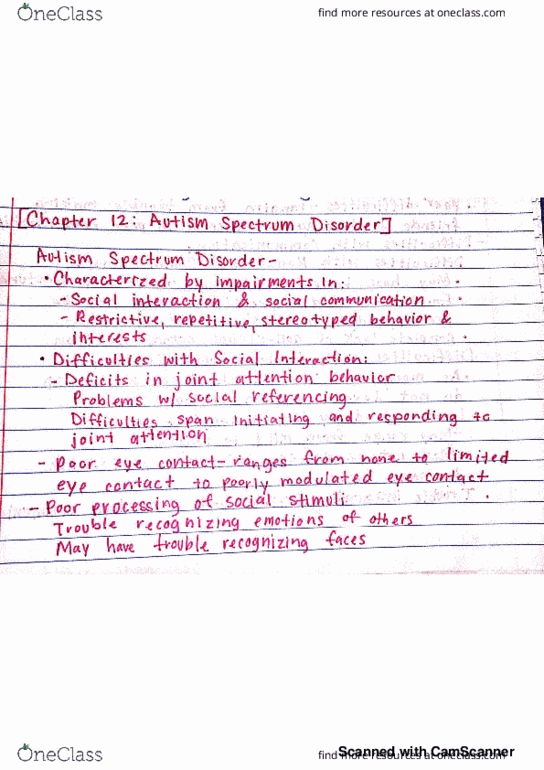 OneClass
find more resources at oneclass.com
[Chapter 12: Autism Spectrum Disorder]
Autism Spectrum Disorder-
• Characterized by impairments in:
- Social interaction & social communication
- Restrictive, repetitive, stereotyped behavior &
interests
• Difficulties with Social Interaction:
- Deficits in joint attention behavior
Problems w/ social referencing
Difficulties span initiating and responding to
joint attention
- Poor eye contact- ranges from none to limited
eye contact to poorly modulated eye contact
- Poor processing of social stimuli
Trouble recognizing emotions of others
May have trouble recognizing faces
OneClass
find more resources at oneclass.com
Scanned with CamScanner